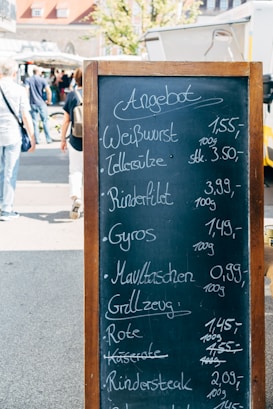 Angebot
Weißwurst 1,55,-
100g
Tellersülze Stk. 3.50,-
Rinderfilet 3,99,-
100g
Gyros 1,49,-
100g
Maultaschen 0,99,-
100g
Grillzeug
Rote 1,45,-
100g
Käserote 1,55,-
100g
Rindersteak 2,09,-
100g